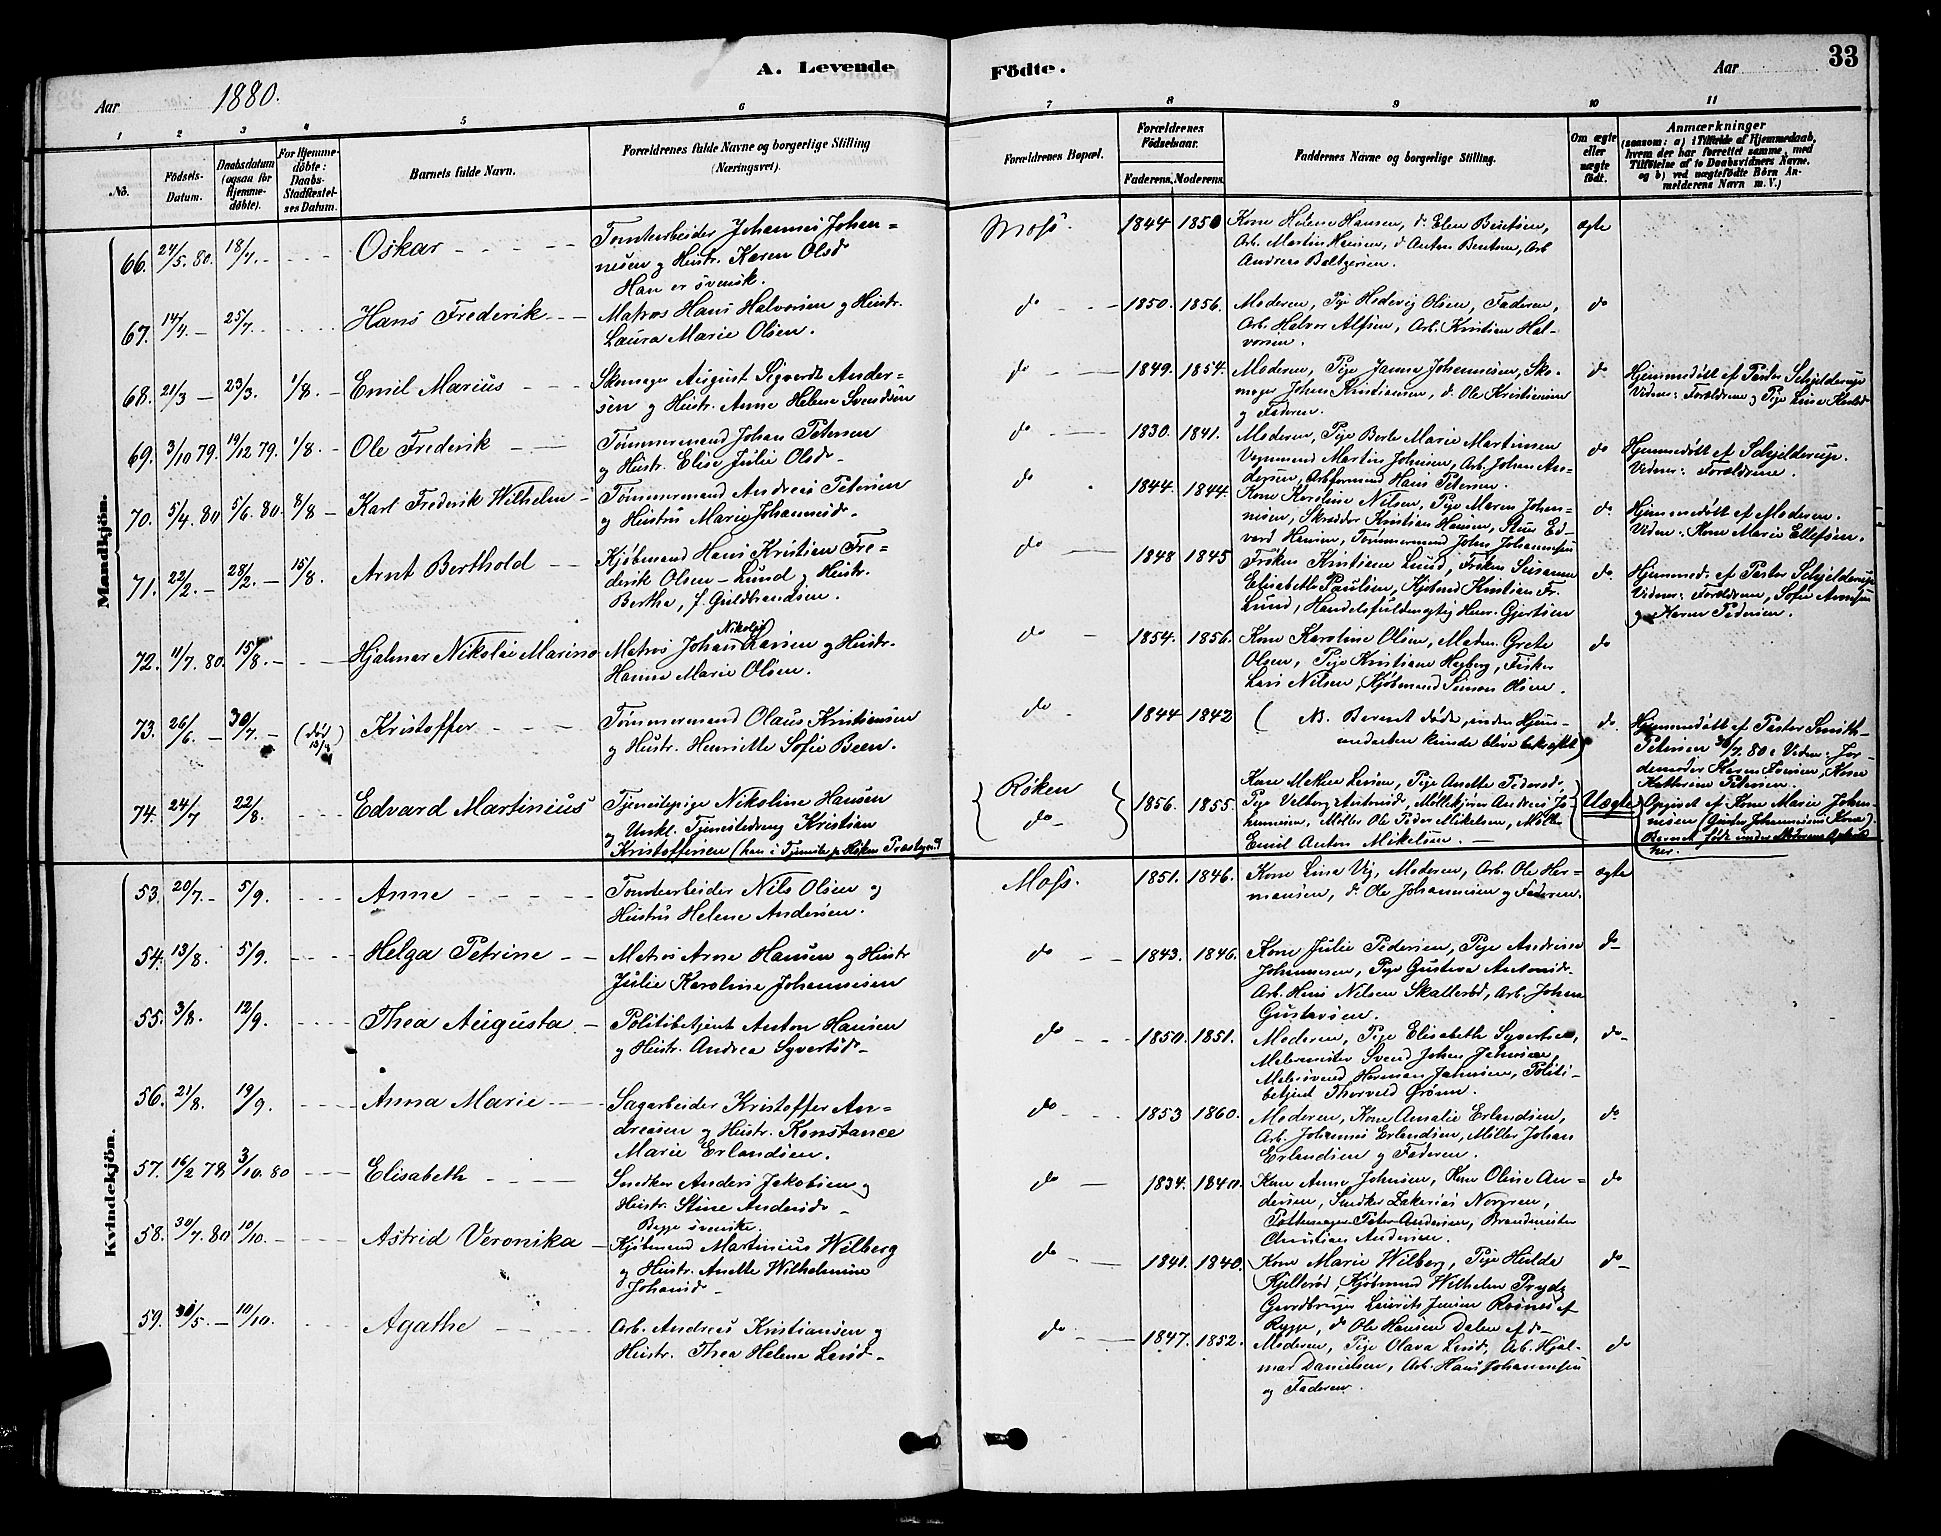 A. Levende Födte.
33
Aar 1880.
Aar
1 2 3 4 5 6 7 8 9 10 11
No.
Födsels-Datum.
Daabsdatum (ogsaa for Hjemme-döbte).
For Hjemme-döbte: Daabs-Stadfæstel-ses Datum.
Barnets fulde Navn.
Forældrenes fulde Navne og borgerlige Stilling (Næringsvei).
Forældrenes Bopæl.
Forældrenes Födselsaar.
Faderens. Moderens.
Faddernes Navne og borgerlige Stilling.
Om ægte eller uægte födt.
Anmærkninger
(saasom: a) i Tilfælde af Hjemmedaab, hvem der har forrettet samme, med Tilföielse af to Daabsvidners Navne, og b) ved uægtefödte Börn An-melderens Navn m. V.)
Mandkjön.
66. 24/5. 80. 18/7. Oskar
Tomtearbeider Johannes Johan=
nesen og Hustr. Karen Olsd
Han er svensk.
Moss. 1844 1850
Kone Helene Hansen, d. Elen Bentsen,
Arb. Martin Hansen, d. Anton Bentsen, Arb
Andreas Baltzersen.
ægte
67. 14/4. 25/7. Hans Frederik
Matros Hans Halvorsen og Hustr.
Laura Marie Olsen.
do 1850. 1856.
Moderen, Pige Hedevig Olsen, Faderen,
Arb. Halvor Alfsen, Arb. Kristian Hal-
vorsen.
do
68. 21/3 23/3. 1/8. Emil Marius
Skomager August Sigvardt Ander=
sen og Hustr. Anne Helene Svendsen
do 1849. 1854.
Moderen, Pige Janna Johannesen, Sko-
mager Johan Kristiansen, d. Ole Kristiansen
og Faderen.
do
Hjemmedöbt af Pastor Schjelderup
Vidner: Forældrene og Pige Lina
69. 3/10 79. 19/12 79. 1/8. Ole Frederik
Tømmermand Johan Petersen
og Hustr. Elise Julie Olsd.
do 1830. 1841.
Moderen, Pige Berte Marie Martinsen
Vognmand Martin Johnsen, Arb. Johan An-
dersen, Arbformand Hans Petersen.
do
Hjemmedöbt af Schjelderup.
Vidner: Forældrene.
70. 5/4. 80 5/6. 80. 8/8 Karl Frederik Wilhelm
Tømmermand Andreas Petersen
og Hustru Marie Johannesd.
do 1844. 1844.
Kone Karoline Nilsen, Pige Maren Johan-
nesen, Skrædder Kristian Hansen, Stuer Ed-
vard Hansen, Tømmermand Johs. Johannesen
do.
Hjemmedöbt af Moderen.
Vidne: Kone Marie Ellefsen.
71. 22/2. 28/2. 15/8. Arnt Berthold
Kjøbmand Hans Kristian Fre=
derik Olsen-Lund og Hustr.
Berthe, f. Guldbrandsen.
do 1848 1845
Frøken Kristiane Lund, Frøken Susanne
Elisabeth Paulsen, Kjøbmd Kristian Fr.
Lund, Handelsfuldmægtig Henr. Gjertsen
do.
Hjemmed. af Pastor Schjelderup
Vidner: Forældrene, Sofie Arnesen
og Maren Pedersen.
72. 11/7. 80. 15/8. Hjalmar Nikolai Marino
Nikolai
Matros Johan Larsen og Hustr.
Hanna Marie Olsen.
do 1854. 1856.
Kone Karoline Olsen, Madm. Grete
Olsen, Pige Kristiane Høyberg, Fisker
Lars Nilsen, Kjøbmand Simon Olsen.
do
73. 26/6. 30/7. (død 13/8) Kristoffer
Tømmermand Olaus Kristiansen
og Hustr. Henriette Sofie Been.
do 1844 1842
(NB. Barnet døde, inden Hjem-
medaaben kunde blive bekræftet)
do.
Hjemmedöbt af Pastor Smith-
Petersen 30/7 80: Vidne: Jor
demoder Karen Iversen, Kone
Kathrine Petersen.
74. 24/7 22/8. Edvard Martinius
Tjenestepige Nikoline Hansen
og Unkl. Tjenestedreng Kristian
Kristoffersen (han i Tjeneste på Röken Præstegaard
Röken
do 1856. 1855
Kone Mathea Larsen, Pige Anette Pedersd.,
Pige Valborg Antonsd., Møllekjører Andreas Jo-
hannesen, Møller Ole Peder Mikelsen, Møller
Emil Anton Mikelsen.
Uægte
Opgivet af Kone Marie Johan-
nesen (Gustav Johannesens Kone).
Barnet født under Moderens Ophold
her.
Kvindekjön.
53. 20/7. 5/9. Anne
Tomtearbeider Nils Olsen og
Hustru Helene Andersen.
Moss. 1851. 1846.
Kone Lina Vig, Moderen, Arb. Ole Her-
mansen, d. Ole Johannesen og Faderen.
ægte
54. 13/8. 5/9. Helga Petrine
Matros Arne Hansen og Hustr
Julie Karoline Johannesen
do 1843. 1846.
Kone Julie Pedersen, Pige Andrine
Johannesen, Pige Gustava Antonsd.
Arb. Hans Nilsen Skallerød, Arb. Johan
Gustavsen.
do
55. 3/8. 12/9. Thea Augusta
Politibetjent Anton Hansen
og Hustr. Andrea Syvertsd.
do 1850. 1851.
Moderen, Pige Elisabeth Syvertsen,
Malermester Svend Johan Jahnsen,
Malersvend Herman Jahnsen, Politi-
betjent Thorvald Grønn.
do
56. 21/8. 19/9. Anna Marie
Sagarbeider Kristoffer An=
dreasen og Hustr. Konstance
Marie Erlandsen.
do 1853 1860.
Moderen, Kone Amalie Erlandsen,
Arb. Johannes Erlandsen, Møller Johan
Erlandsen og Faderen.
do
57. 16/2 78 3/10. 80 Elisabeth
Snedker Anders Jakobsen og
Hustr. Stine Andersd.
Begge svenske.
do 1834. 1840.
Kone Anna Johnsen, Kone Oline An-
dersen, Snedker Zakarias Norgren,
Pottemager Peter Andersen, Brandmester
Christian Andersen.
do
58. 30/7. 80 10/10. Astrid Veronika
Kjøbmand Martinius Wilberg
og Hustr. Anette Wilhelmine
Johansd.
do 1841. 1840.
Kone Marie Wilberg, Pige Hulda
Kjellerød, Kjøbmand Wilhelm Prydz
Gaardbruger Lauritz Jensen Rosnes af
Rygge, d. Ole Hansen Dalen af do.
do
59. 30/5. 10/10. Agathe
Arb. Andreas Kristiansen og
Hustr. Thea Helene Larsd.
do 1847. 1852.
Moderen, Pige Olava Larsd., Arb. Hjal-
mar Danielsen, Arb. Hans Johannesen
og Faderen.
do